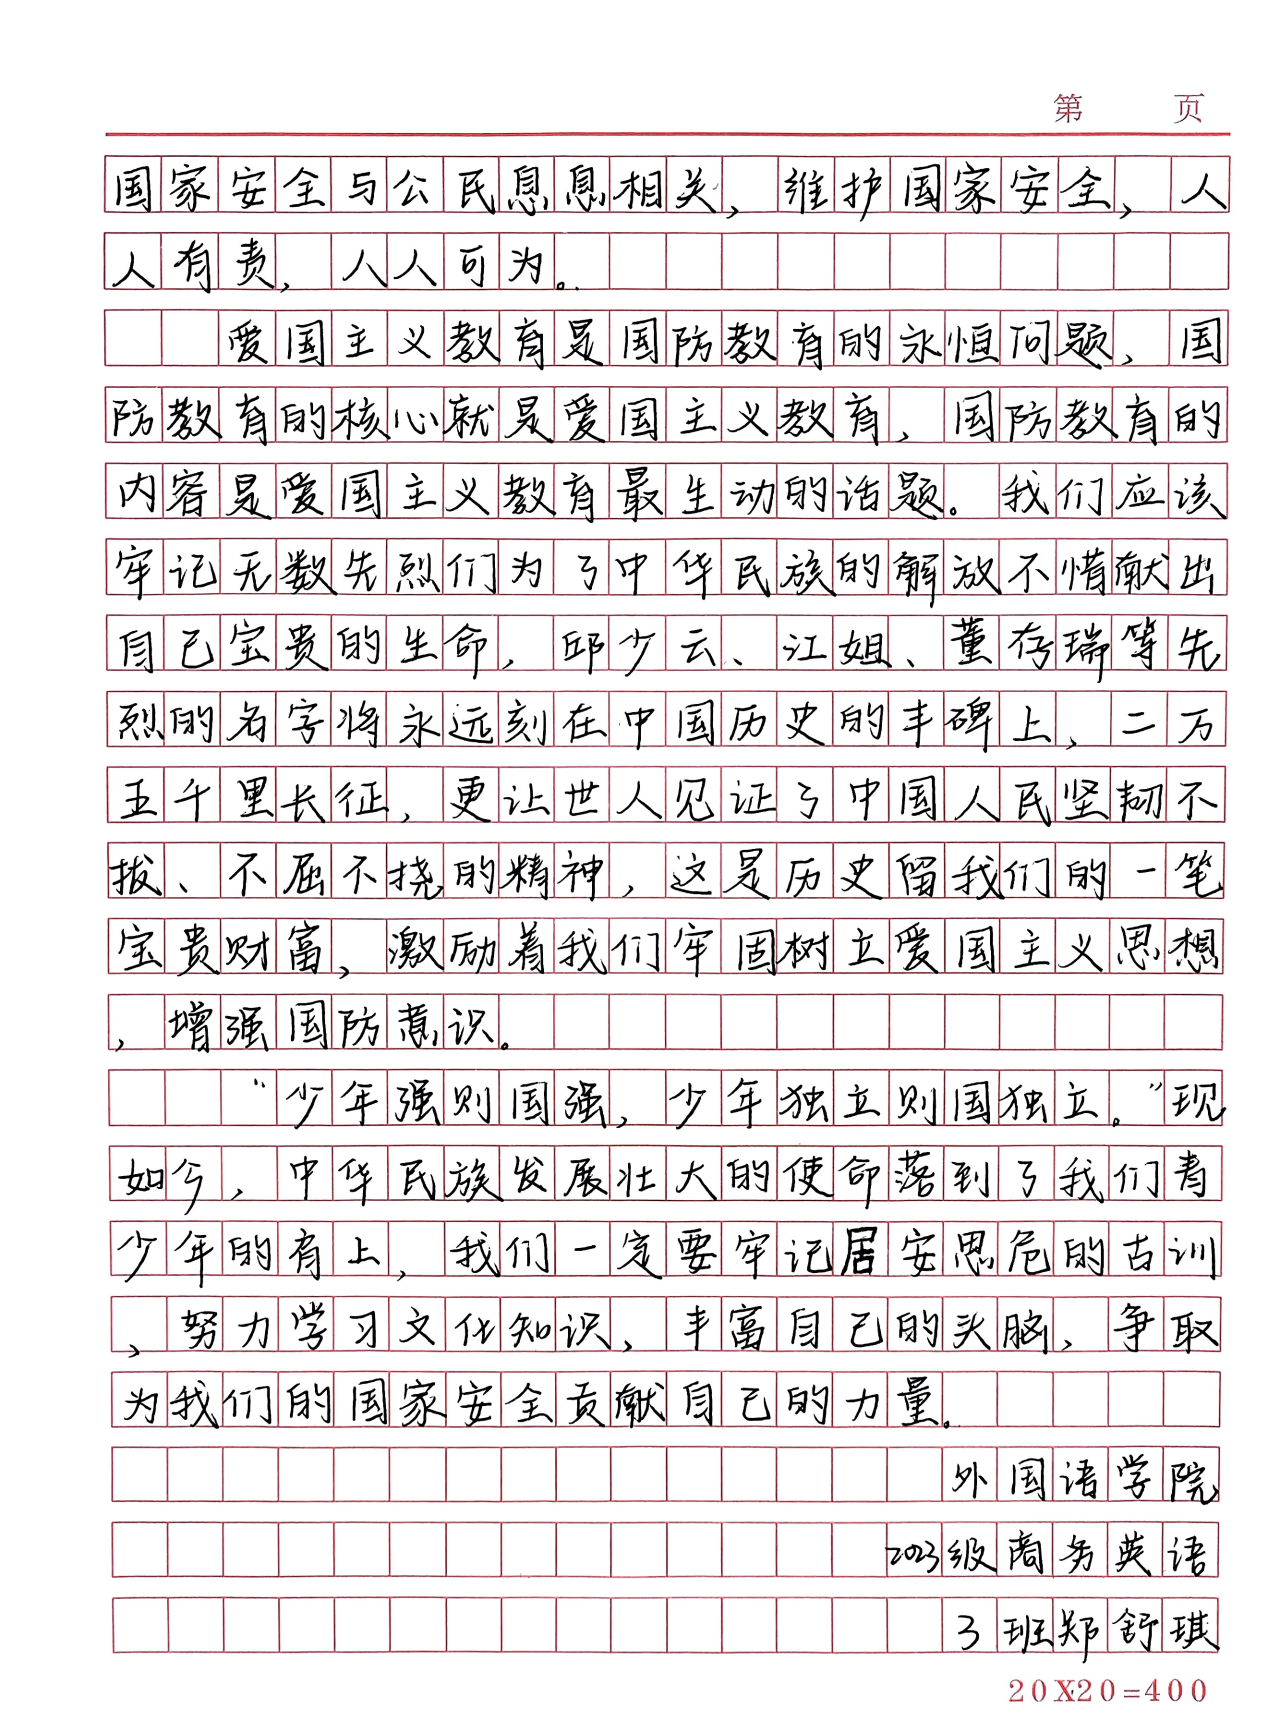 第 页
国家安全与公民息息相关，维护国家安全，人
人有责，人人可为。
爱国主义教育是国防教育的永恒问题、国
防教育的核心就是爱国主义教育，国防教育的
内容是爱国主义教育最生动的话题。我们应该
牢记无数先烈们为了中华民族的解放不惜献出
自己宝贵的生命，邱少云、江姐、董存瑞等先
烈的名字将永远刻在中国历史的丰碑上，二万
五千里长征，更让世人见证了中国人民坚韧不
拔、不屈不挠的精神，这是历史留我们的一笔
宝贵财富，激励着我们牢固树立爱国主义思想
，增强国防意识。
“少年强则国强，少年独立则国独立。”现
如今，中华民族发展壮大的使命落到了我们青
少年的肯上，我们一定要牢记居安思危的古训
、努力学习文化知识，丰富自己的头脑，争取
为我们的国家安全贡献自己的力量。
外国语学院
2023级商务英语
3班郑舒琪
20X20=400